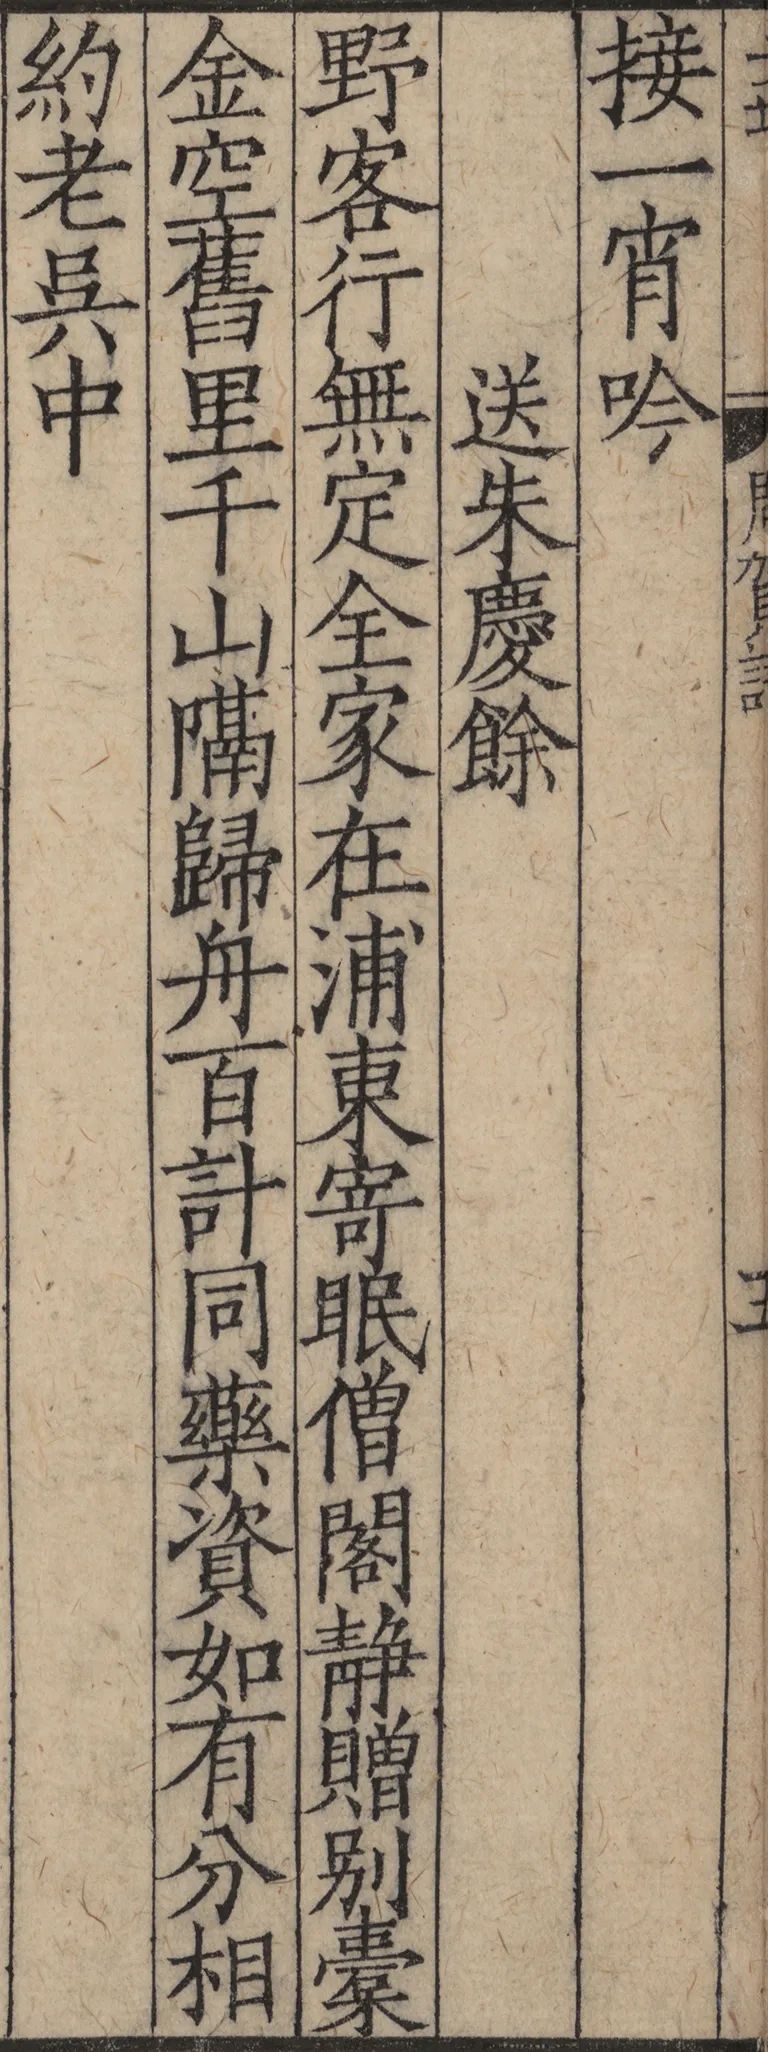 周賀詩
五
接一宵吟
送朱慶餘
野客行無定全家在浦東寄眠僧閣靜贈别橐
金空舊里千山隔歸舟百計同藥資如有分相
約老吳中